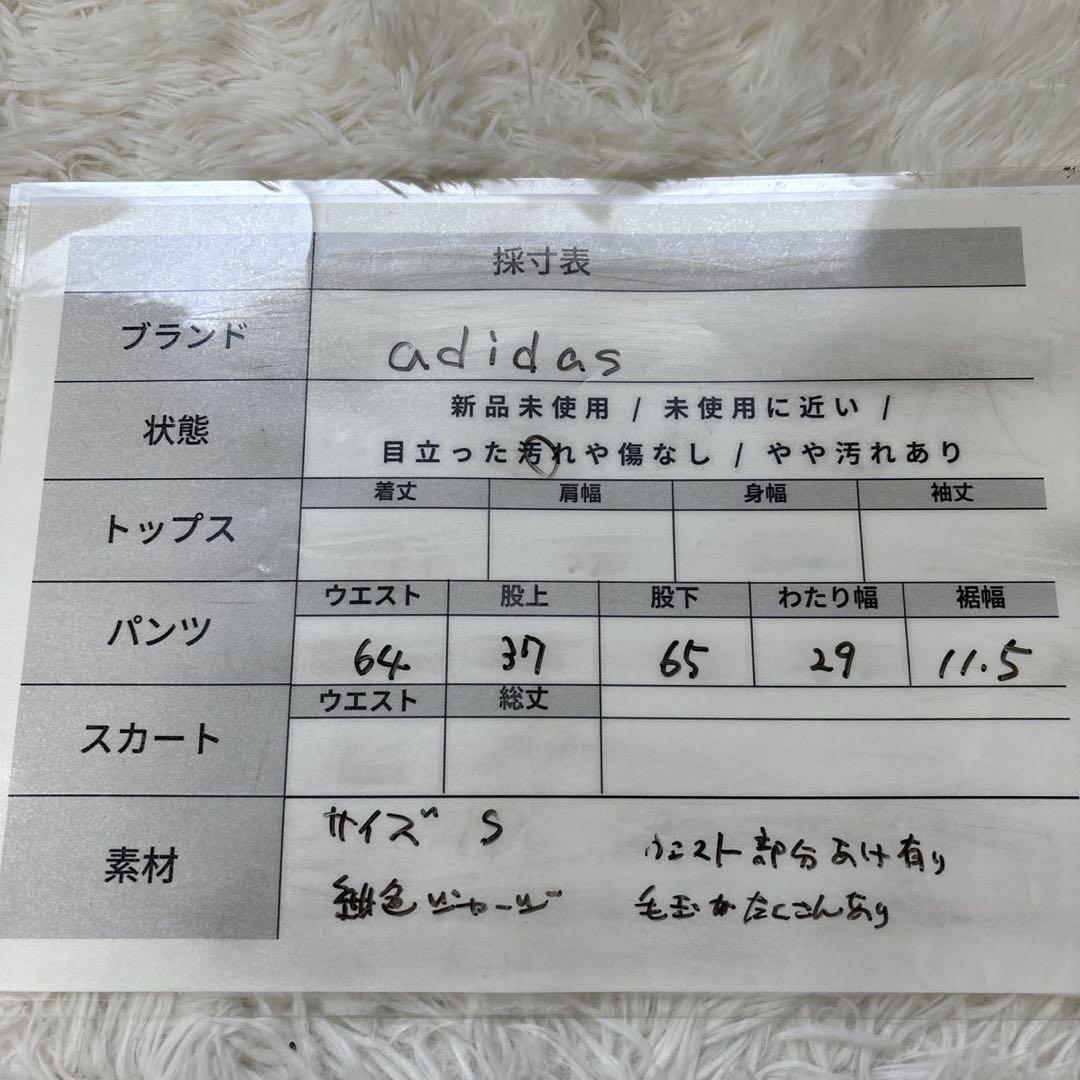 採寸表
ブランド adidas
状態 新品未使用 / 未使用に近い /
目立った汚れや傷なし / やや汚れあり
トップス 着丈 肩幅 身幅 袖丈
パンツ ウエスト 股上 股下 わたり幅 裾幅
64 37 65 29 11.5
スカート ウエスト 総丈
素材 サイズ S
ウエスト部分 有り
紺色ジャージ
毛玉がたくさんあり